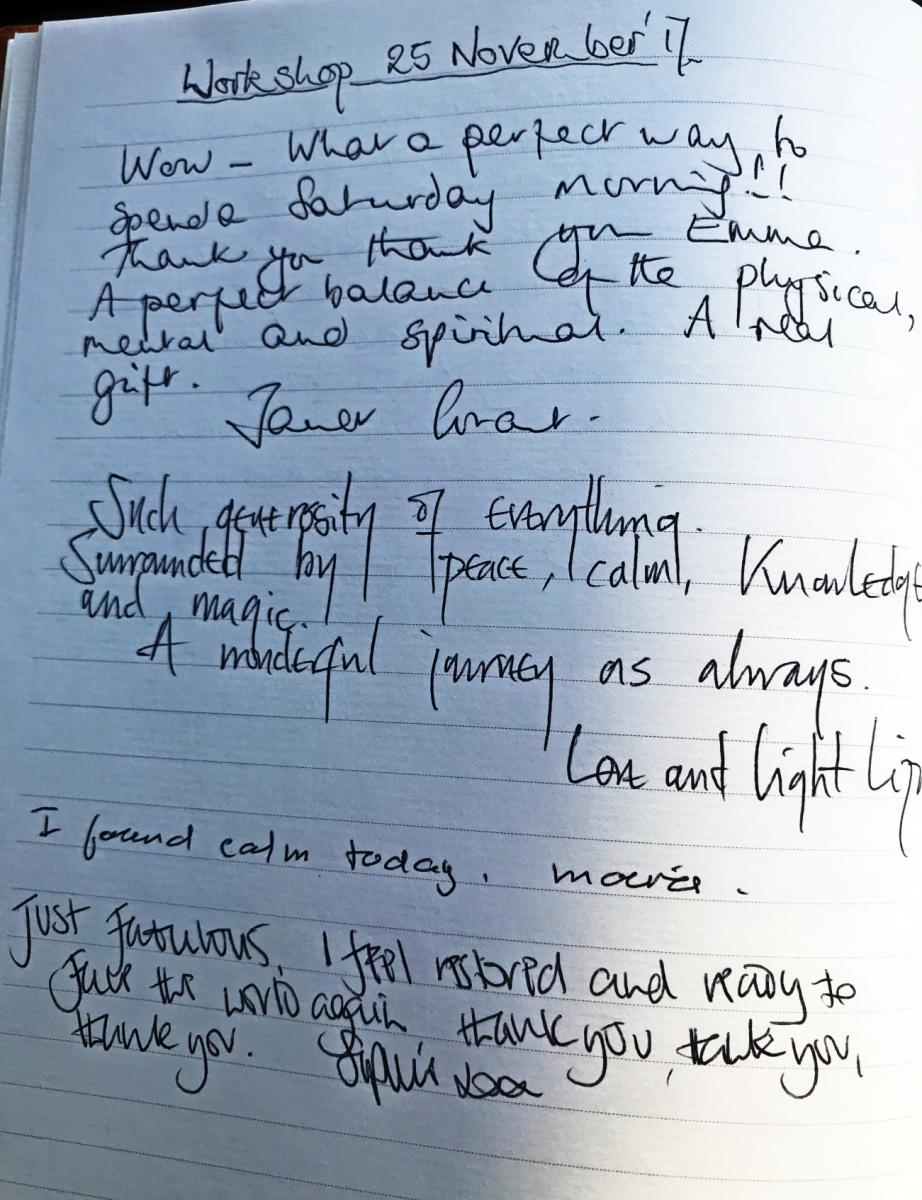 Workshop 25 November '17
Wow – What a perfect way to
spend a Saturday morning!!
Thank you thank you Emma.
A perfect balance of the physical,
mental and spiritual. A real
gift.
Janet Grant.
Such generosity of everything.
Surrounded by peace, calm, Knowledge
and magic.
A wonderful journey as always.
Love and light
I found calm today.
Just Fabulous. I feel restored and ready to
face the world again thank you, thank you,
thank you. Sophie xxx